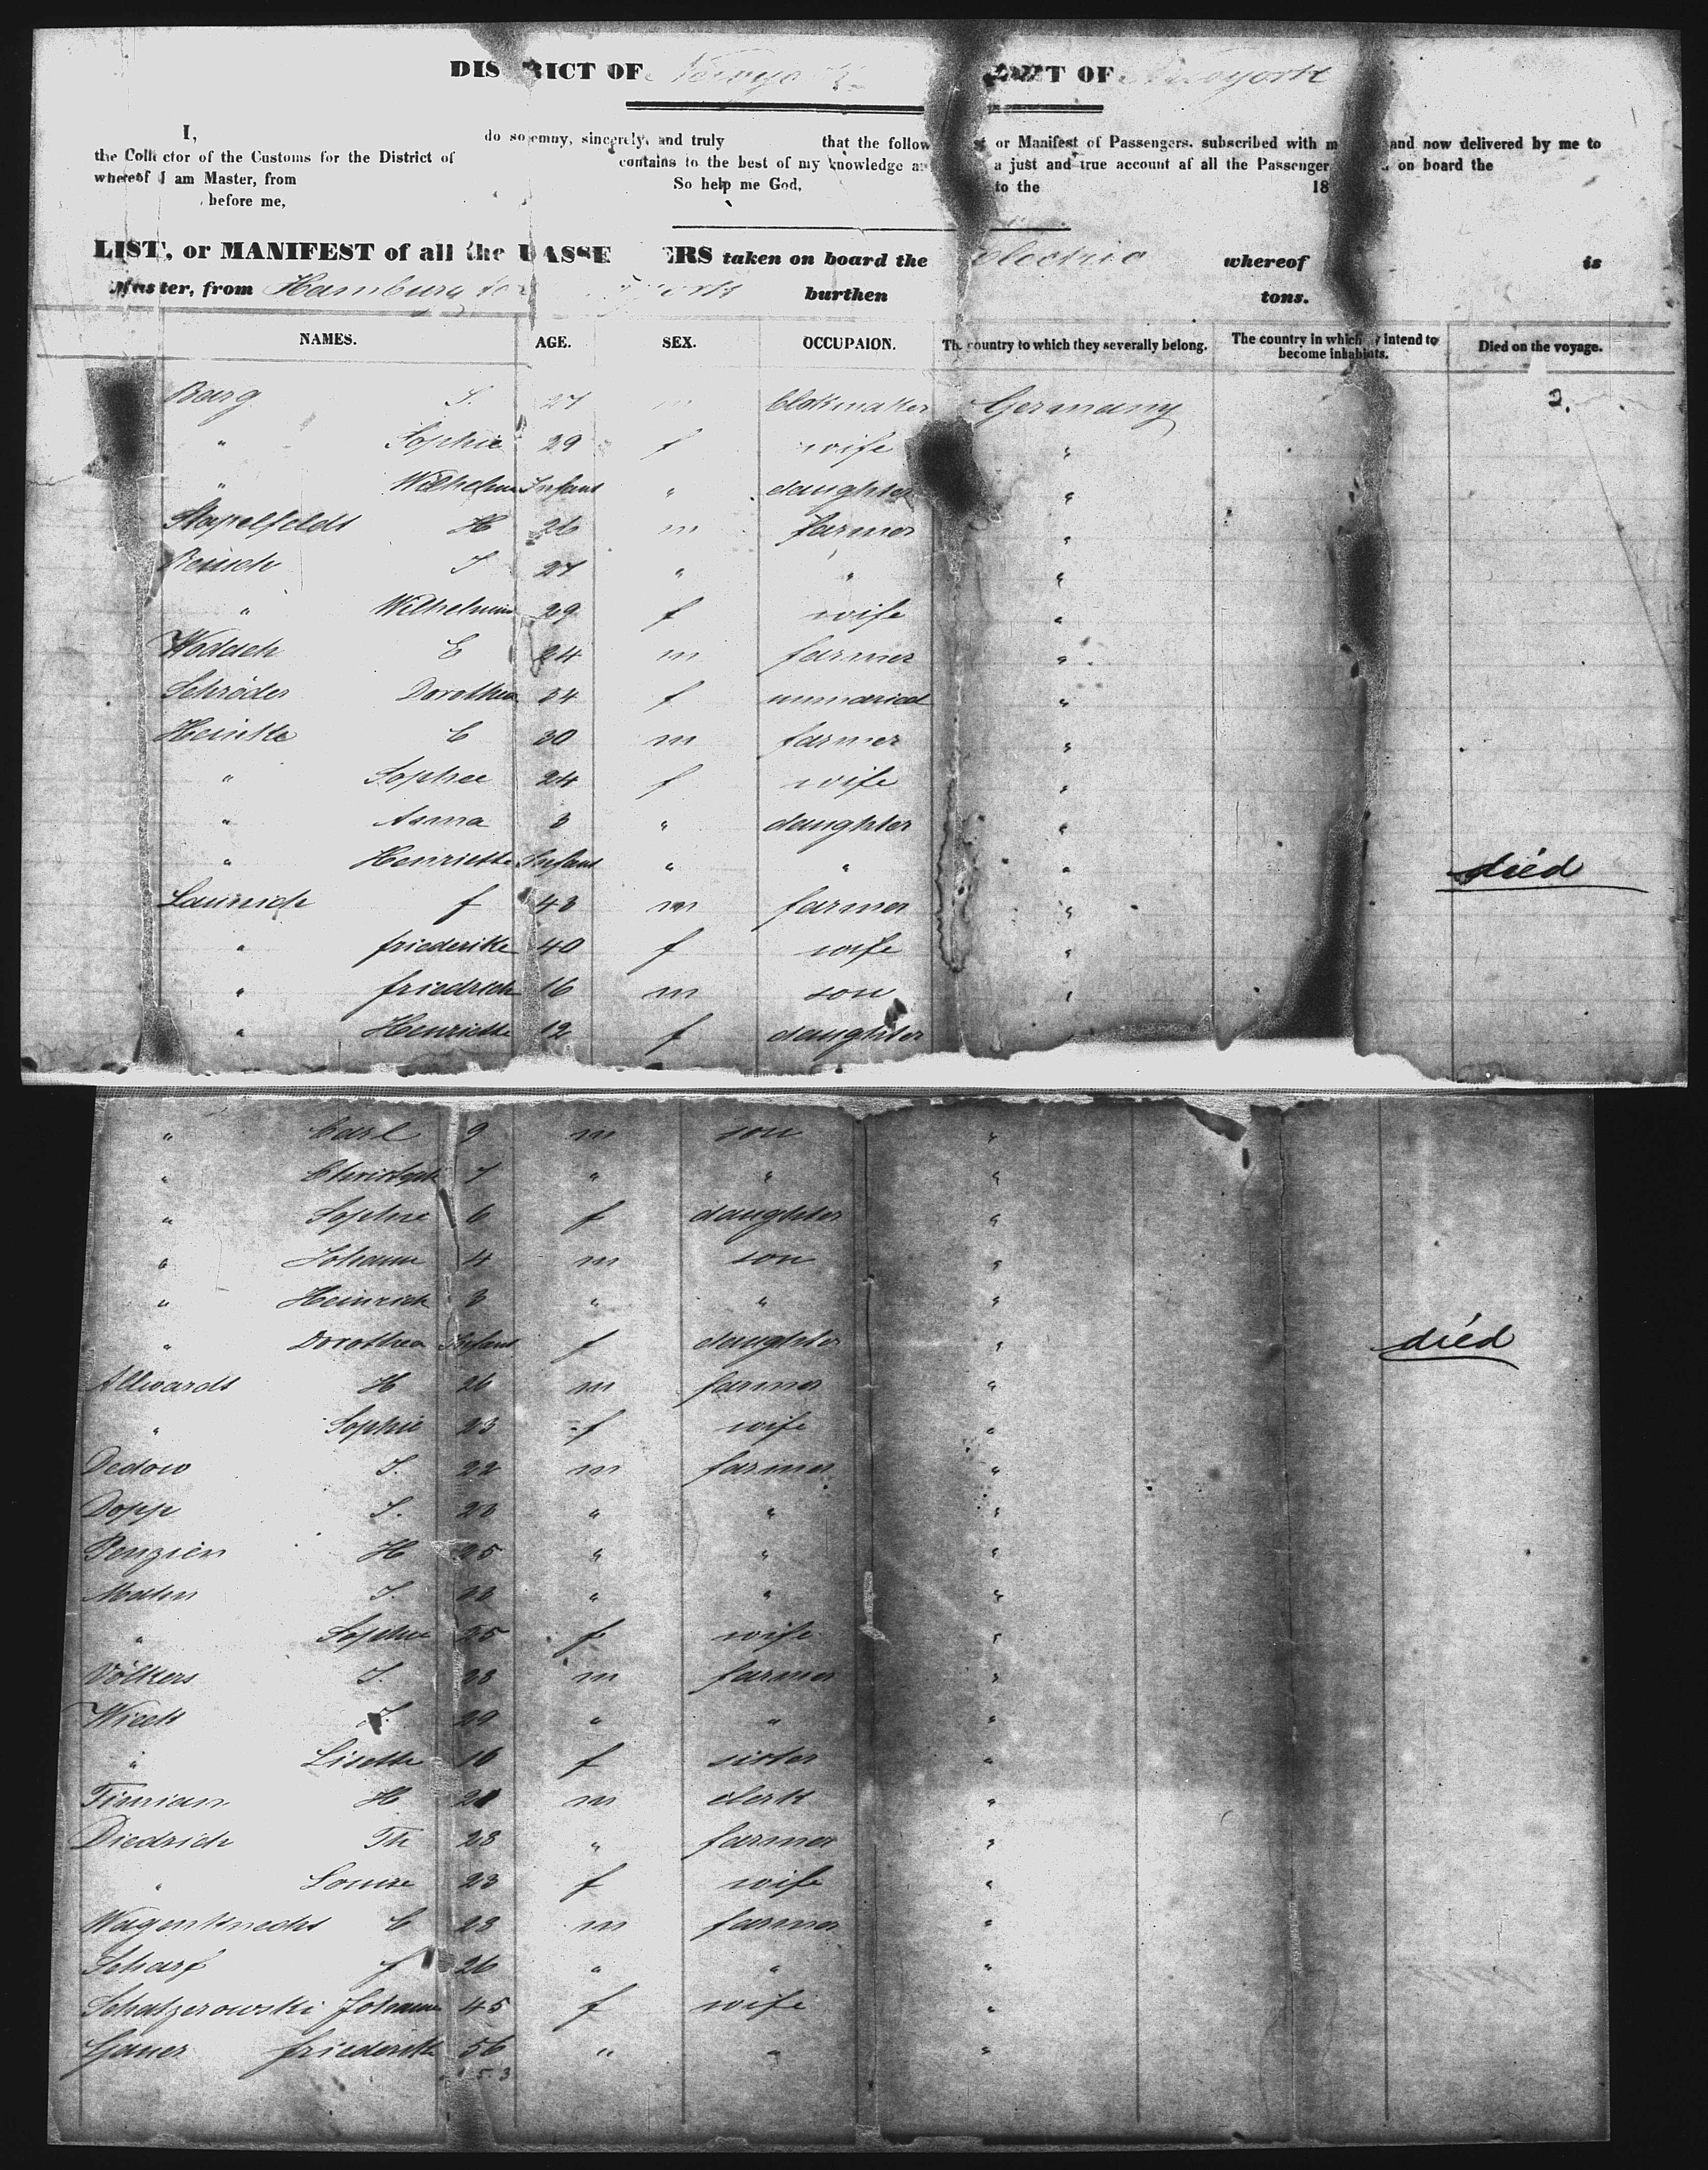 DISTRICT OF Newyork PORT OF Newyork
I, do solemny, sincerely, and truly that the follow or Manifest of Passengers, subscribed with m and now delivered by me to
the Collector of the Customs for the District of contains to the best of my knowledge a just and true account af all the Passenger on board the
whereof I am Master, from So help me God, to the 18
before me,
LIST, or MANIFEST of all the PASSE ERS taken on board the Electric whereof is
Master, from Hamburg burthen tons.
NAMES. AGE. SEX. OCCUPAION. The country to which they severally belong. The country in which intend to become inhabitants. Died on the voyage.
Barg 27 m Germany 2.
" Sophie 29 f wife "
" Infant " daughter "
Stapelfeldt H 26 m farmer "
27 " " "
" 29 f wife "
C 24 m farmer "
Schröder Dorothea 34 f unmaried "
Heinke C 30 m farmer "
" Sophie 24 f wife "
" Anna 3 " daughter "
" Henriette Infant " " " died
f 43 m farmer "
" friederike 40 f wife "
" friedrich 16 m son "
" Henriette 12 f daughter
" Carl 9 m son "
" Christoph 7 " " "
" Sophie 6 f daughter "
" Johann 4 m son "
" Heinrich 3 " " "
" Dorothea Infant f daughter " died
Allwardt H 26 m farmer "
" Sophie 23 f wife "
Dedow J. 22 m farmer "
Dopp J. " " "
Penzien H 25 " " "
J. " " "
" Sophie 25 f wife "
Völkers J. 28 m farmer "
29 " " "
" Lisette 16 f sister "
Timian H m clerk "
Diedrich Th 28 " farmer "
" Louise 23 f wife "
Wagenknecht C 28 m farmer "
Scharf f 26 " " "
Schatzerowski Johanna 45 f wife "
friederike 56 " " "